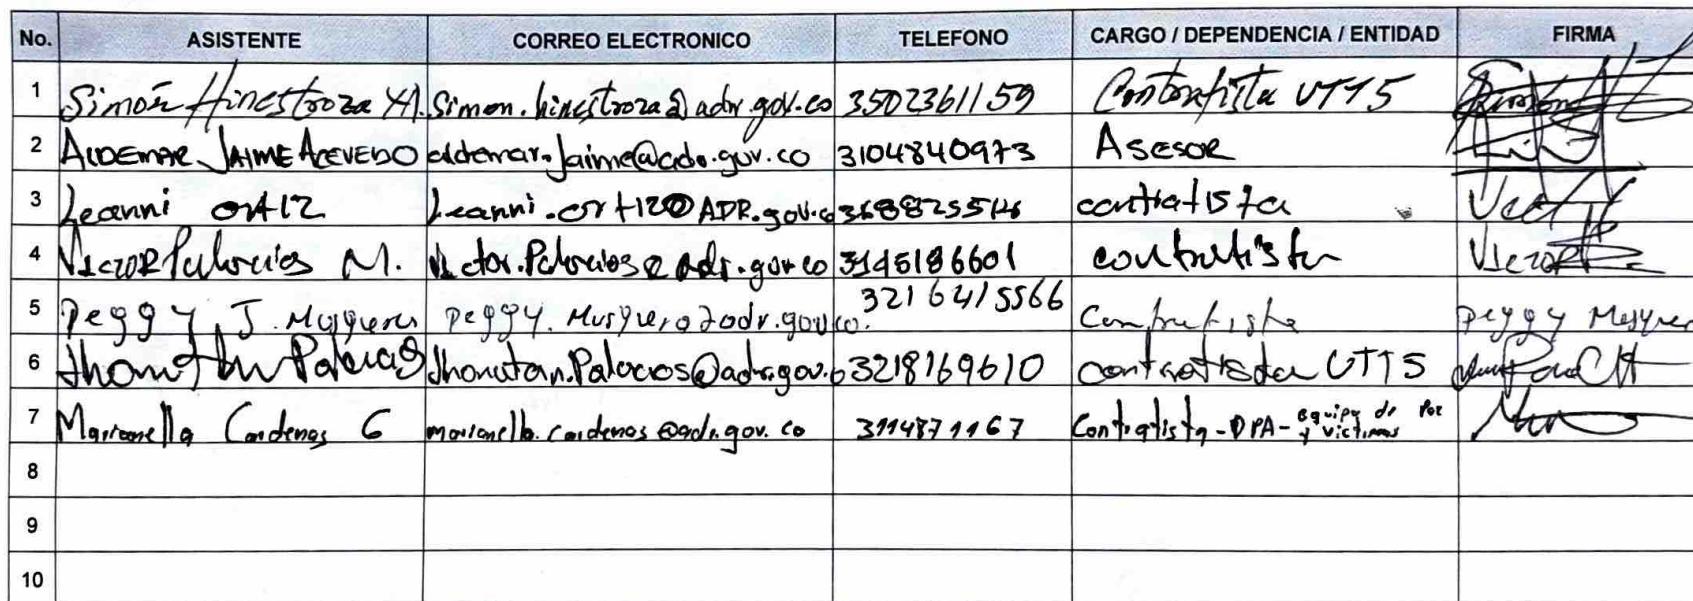 No. ASISTENTE CORREO ELECTRONICO TELEFONO CARGO / DEPENDENCIA / ENTIDAD FIRMA
1 Simón Hinestroza simon.hinestroza@adr.gov.co 3502361159 Contratista UTT5
2 ALDEMAR JAIME ACEVEDO aldemar.jaime@adr.gov.co 3104840973 ASESOR
3 Leanni ortiz Leanni.ortiz@ADR.gov.co contratista
4 VICTOR Palacios M. Victor.Palacios@adr.gov.co 3145186601 contratista VICTOR
5 Peggy J. Mosquera peggy.mosquera@adr.gov.co. 3216415566 Contratista Peggy Mosquera
6 Jhonatan Palacios Jhonatan.Palacios@adr.gov.co 3218169610 contratista UTT5
7 Marionella Cardenas C marionella.cardenas@adr.gov.co 3114871167 Contratista - DPA - equipo de Paz y victimas
8
9
10